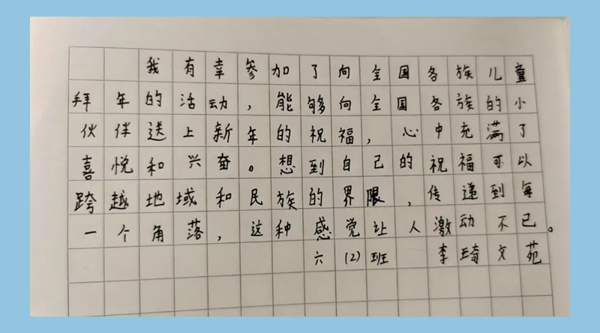 我有幸参加了向全国各族儿童
拜年的活动，能够向全国各族的小
伙伴送上新年的祝福，心中充满了
喜悦和兴奋。想到自己的祝福可以
跨越地域和民族的界限，传递到每
一个角落，这种感觉让人激动不已。
六(2)班 李琦文苑